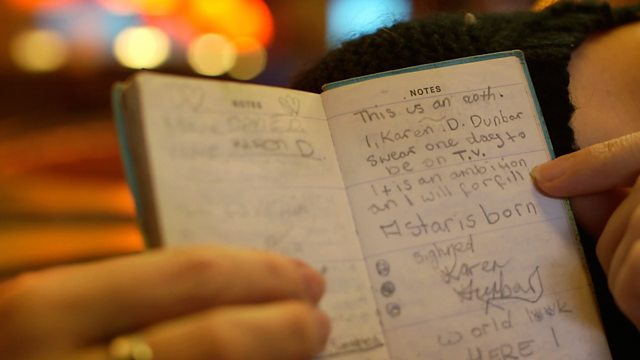 NOTES
KAREN D.
NOTES
This is an oath.
I, Karen D. Dunbar
swear one day to
be on T.V.
It is an ambition
an I will forfill
A star is born
sighned
Karen
Dunbar
world look
HERE I